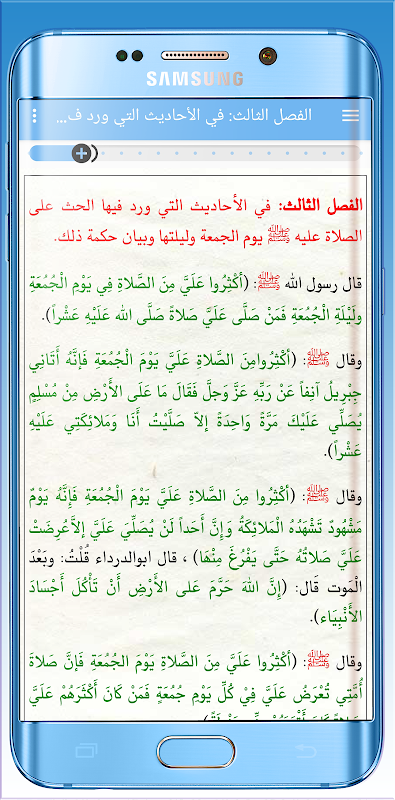 SAMSUNG
الفصل الثالث: في الأحاديث التي ورد ف...
الفصل الثالث: في الأحاديث التي ورد فيها الحث على
الصلاة عليه ﷺ يوم الجمعة وليلتها وبيان حكمة ذلك.
قال رسول الله ﷺ: (أَكْثِرُوا عَلَيَّ مِنَ الصَّلاةِ فِي يَوْمِ الْجُمُعَةِ
ولَيْلَةِ الْجُمُعَة فَمَنْ صَلَّى عَلَيَّ صَلاةً صَلَّى الله عَلَيْهِ عَشْراً).
وقال ﷺ: (أَكْثِرُوامِنَ الصَّلاةِ عَلَيَّ يَوْمَ الْجُمُعَةِ فَإِنَّهُ أَتَانِي
جِبْرِيلُ آنِفاً عَنْ رَبِّهِ عَزَّ وَجَلَّ فَقَالَ مَا عَلَى الأَرْضِ مِنْ مُسْلِمٍ
يُصَلِّي عَلَيْكَ مَرَّةً وَاحِدَةً إِلاَّ صَلَّيْتُ أَنَا وَمَلائِكَتِي عَلَيْهِ
عَشْراً).
وقال ﷺ: (أَكْثِرُوا مِنَ الصَّلاةِ عَلَيَّ يَوْمَ الْجُمُعَةِ فَإِنَّهُ يَوْمٌ
مَشْهُودٌ تَشْهَدُهُ الْمَلائِكَةُ وَإِنَّ أَحَداً لَنْ يُصَلِّيَ عَلَيَّ إلاَّعُرِضَتْ
عَلَيَّ صَلاتُهُ حَتَّى يَفْرُغَ مِنْهَا) ، قال ابوالدرداء قُلْتُ: وبَعْدَ
الْمَوت قَال: (إِنَّ اللهَ حَرَّمَ عَلى الأَرْضِ أَنْ تَأْكُلَ أَجْسَادَ
الأَنْبِيَاء).
وقال ﷺ: (أَكْثِرُوا عَلَيَّ مِنَ الصَّلاةِ يَوْمَ الجُمُعَةِ فَإِنَّ صَلاةَ
أُمَّتِي تُعْرَضُ عَلَيَّ فِيْ كُلِّ يَوْمِ جُمُعَةٍ فَمَنْ كَانَ أَكْثَرَهُمْ عَلَيَّ